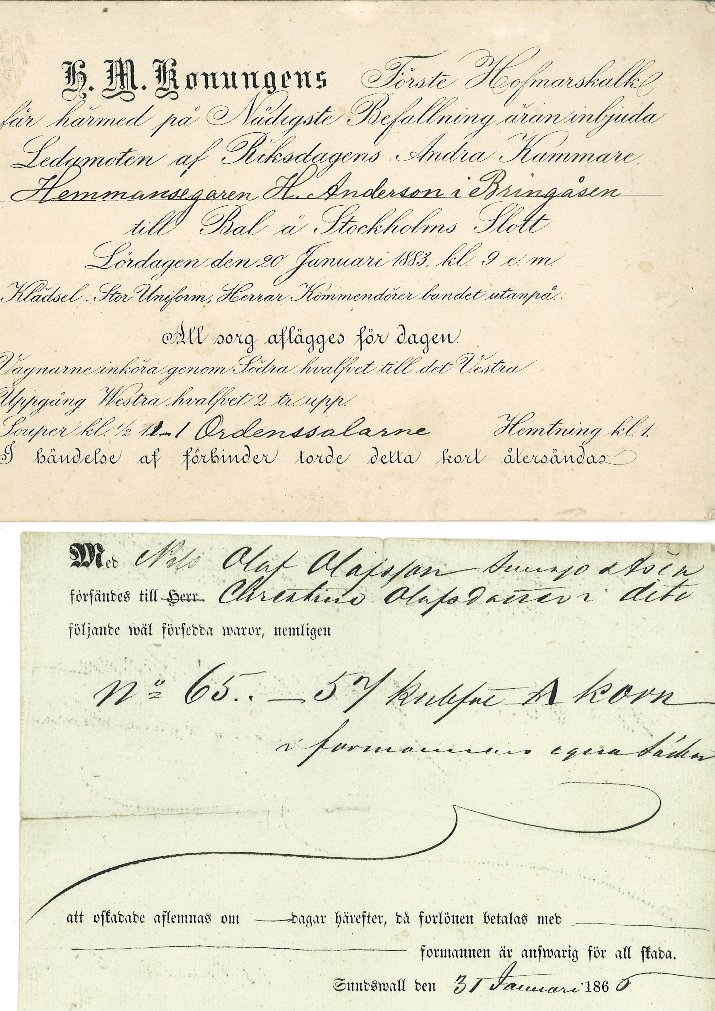 H. M. Konungens Förste Hofmarskalk
får härmed på Nådigste Befallning äran inbjuda
Ledamoten af Riksdagens Andra Kammare
Hemmansegaren H. Anderson i Bringåsen
till Bal å Stockholms Slott
Lördagen den 20 Januari 1883. kl. 9 e.m.
Klädsel. Stor Uniform, Herrar Kommendörer bandet utanpå.
All sorg aflägges för dagen.
Vagnarne inköra genom Södra hvalfvet till det Vestra
Uppgång Westra hvalfvet 2 tr. upp.
Souper kl. ½ 12-1 Ordenssalarne Hemtning kl. 1.
I händelse af förhinder torde detta kort återsändas.
Med Nils Olof Olofsson
försändes till Herr Christine Olofsdotter i dito
följande wäl försedda waror, nemligen
No 65. — 57 kubfot korn
i formannens egna säckar
att oskadade aflemnas om dagar härefter, då forlönen betalas med
formannen är answarig för all skada.
Sundswall den 31 Januari 186